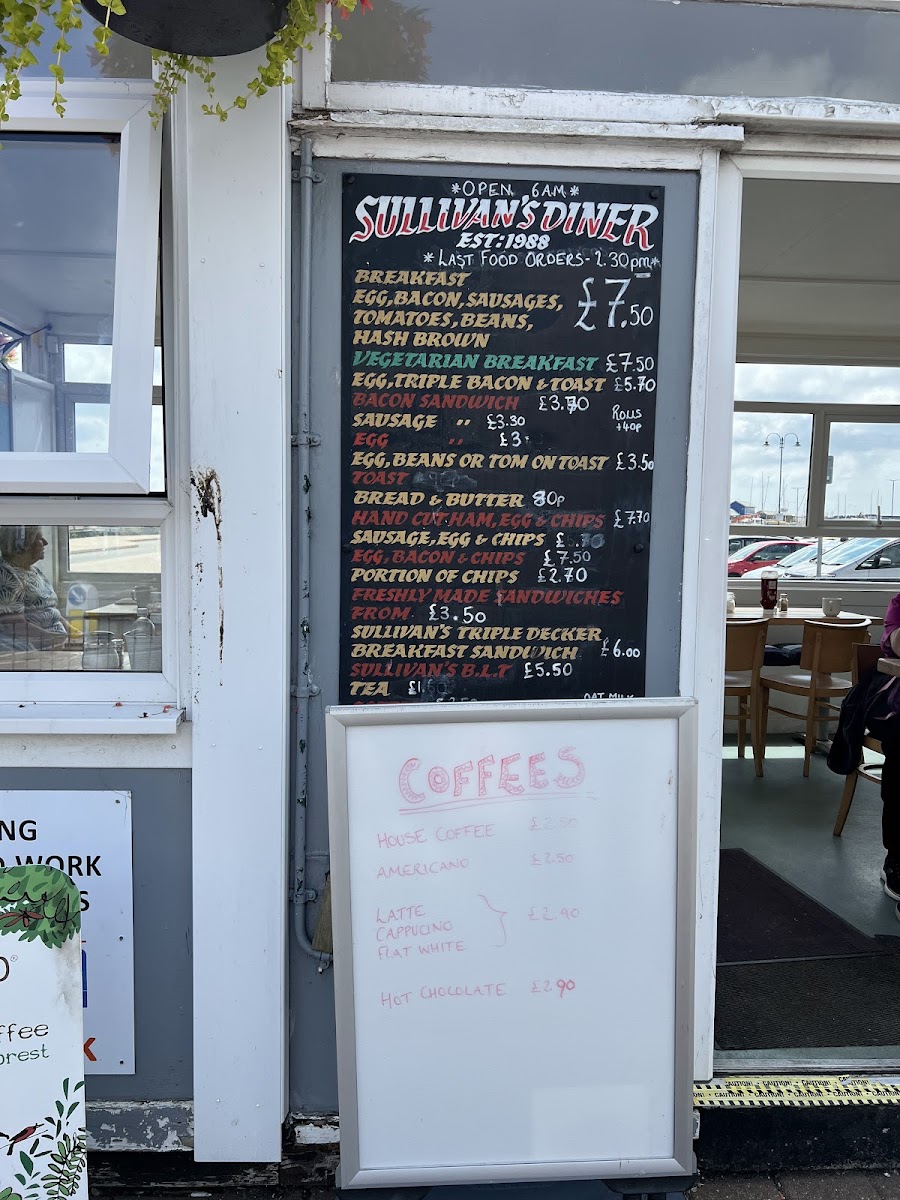 *OPEN 6AM*
SULLIVAN'S DINER
EST: 1988
*LAST FOOD ORDERS - 2.30pm*
BREAKFAST
EGG, BACON, SAUSAGES, £7.50
TOMATOES, BEANS,
HASH BROWN
VEGETARIAN BREAKFAST £7.50
EGG, TRIPLE BACON & TOAST £5.70
BACON SANDWICH £3.70
SAUSAGE " £3.30
ROLLS
+40p
EGG " £3.
EGG, BEANS OR TOM ON TOAST £3.50
TOAST
BREAD & BUTTER 80p
HAND CUT HAM, EGG & CHIPS £7.70
SAUSAGE, EGG & CHIPS
EGG, BACON & CHIPS £7.50
PORTION OF CHIPS £2.70
FRESHLY MADE SANDWICHES
FROM £3.50
SULLIVAN'S TRIPLE DECKER
BREAKFAST SANDWICH £6.00
SULLIVAN'S B.L.T £5.50
TEA
OAT MILK
COFFEES
HOUSE COFFEE £2.50
AMERICANO £2.50
LATTE
CAPPUCINO £2.90
FLAT WHITE
HOT CHOCOLATE £2.90
NG
WORK
S
K
ffee
orest
CAUTION! CAUTION! CAUTION! CAUTION!